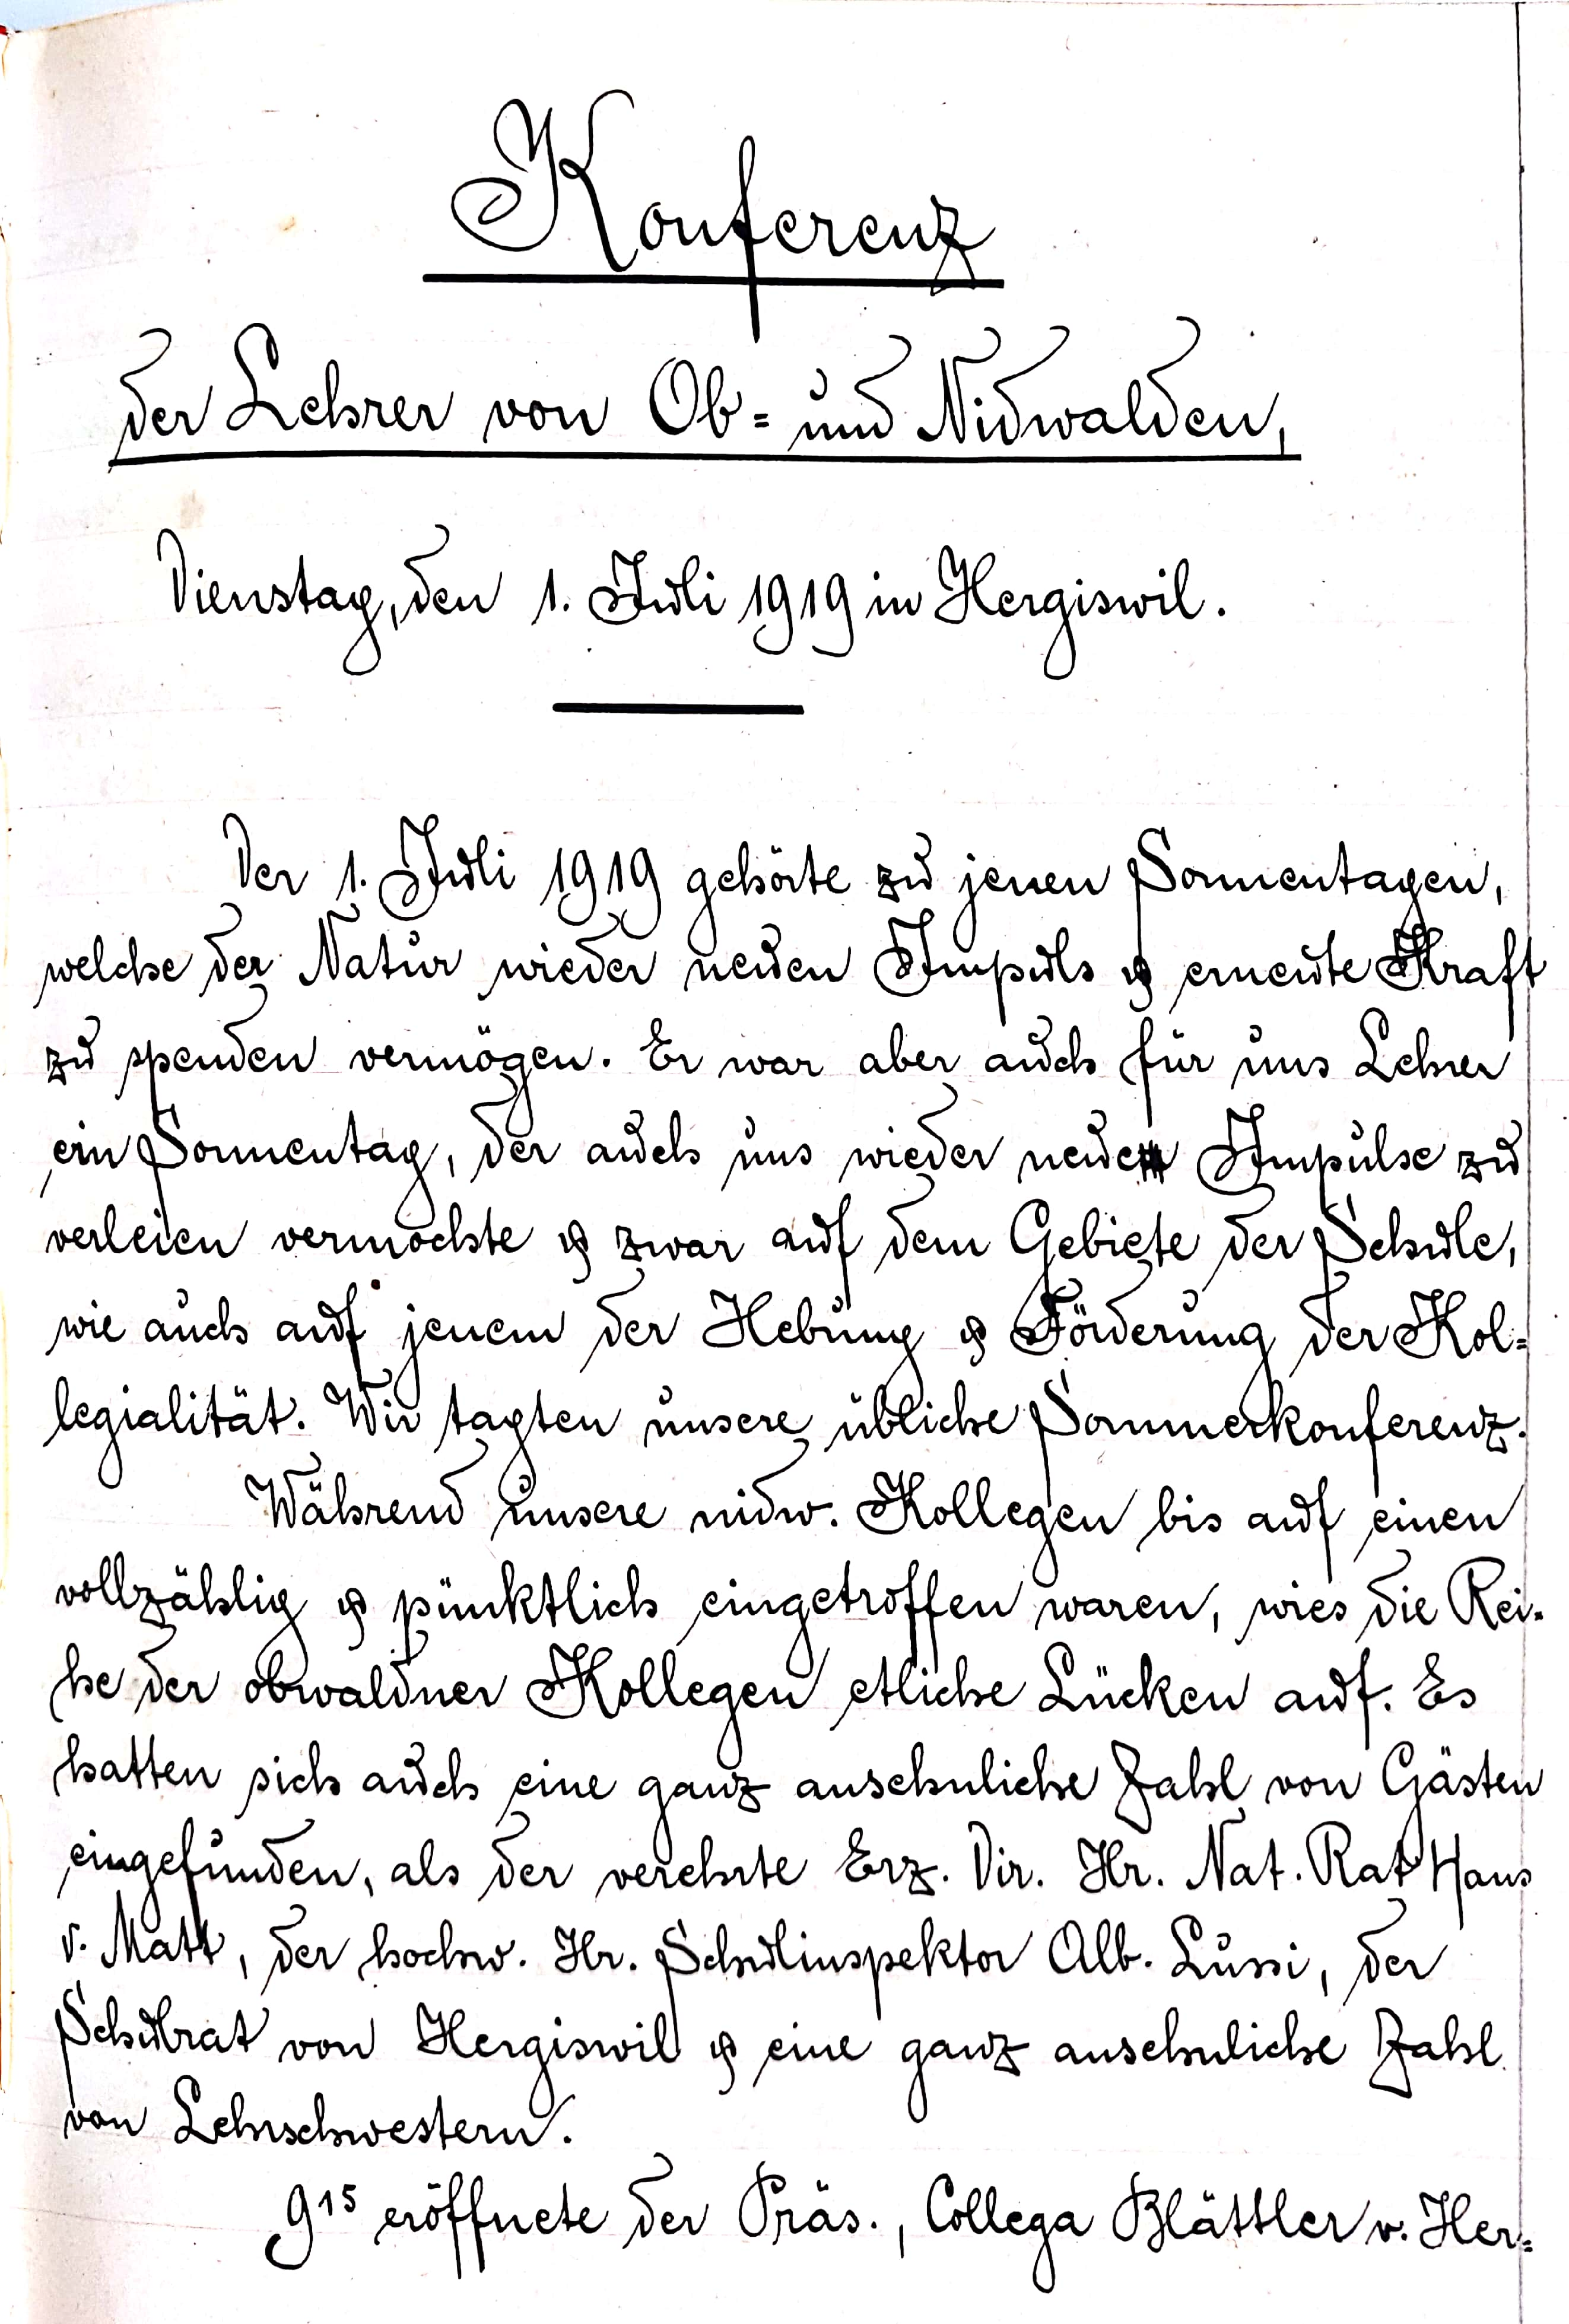 Konferenz
der Lehrer von Ob= und Nidwalden,
Dienstag, den 1. Juli 1919 in Hergiswil.
Der 1. Juli 1919 gehörte zu jenen Sonnentagen,
welche der Natur wieder neuen Impuls & erneute Kraft
zu spenden vermögen. Er war aber auch für uns Lehrer
ein Sonnentag, der auch uns wieder neue Impulse zu
verleien vermochte & zwar auf dem Gebiete der Schule,
wie auch auf jenem der Hebung & Förderung der Kol=
legialität. Wir tagten unsere übliche Sommerkonferenz.
Während unsere nidw. Kollegen bis auf einen
vollzählig & pünktlich eingetroffen waren, wies die Rei-
he der obwaldner Kollegen etliche Lücken auf. Es
hatten sich auch eine ganz ansehnliche Zahl von Gästen
eingefunden, als der verehrte Erz. Dir. Hr. Nat. Rat Hans
v. Matt, der hochw. Hr. Schulinspektor Alb. Lussi, der
Schulrat von Hergiswil & eine ganz ansehnliche Zahl
von Lehrschwestern.
9¹⁵ eröffnete der Präs., Collega Blättler v. Her=